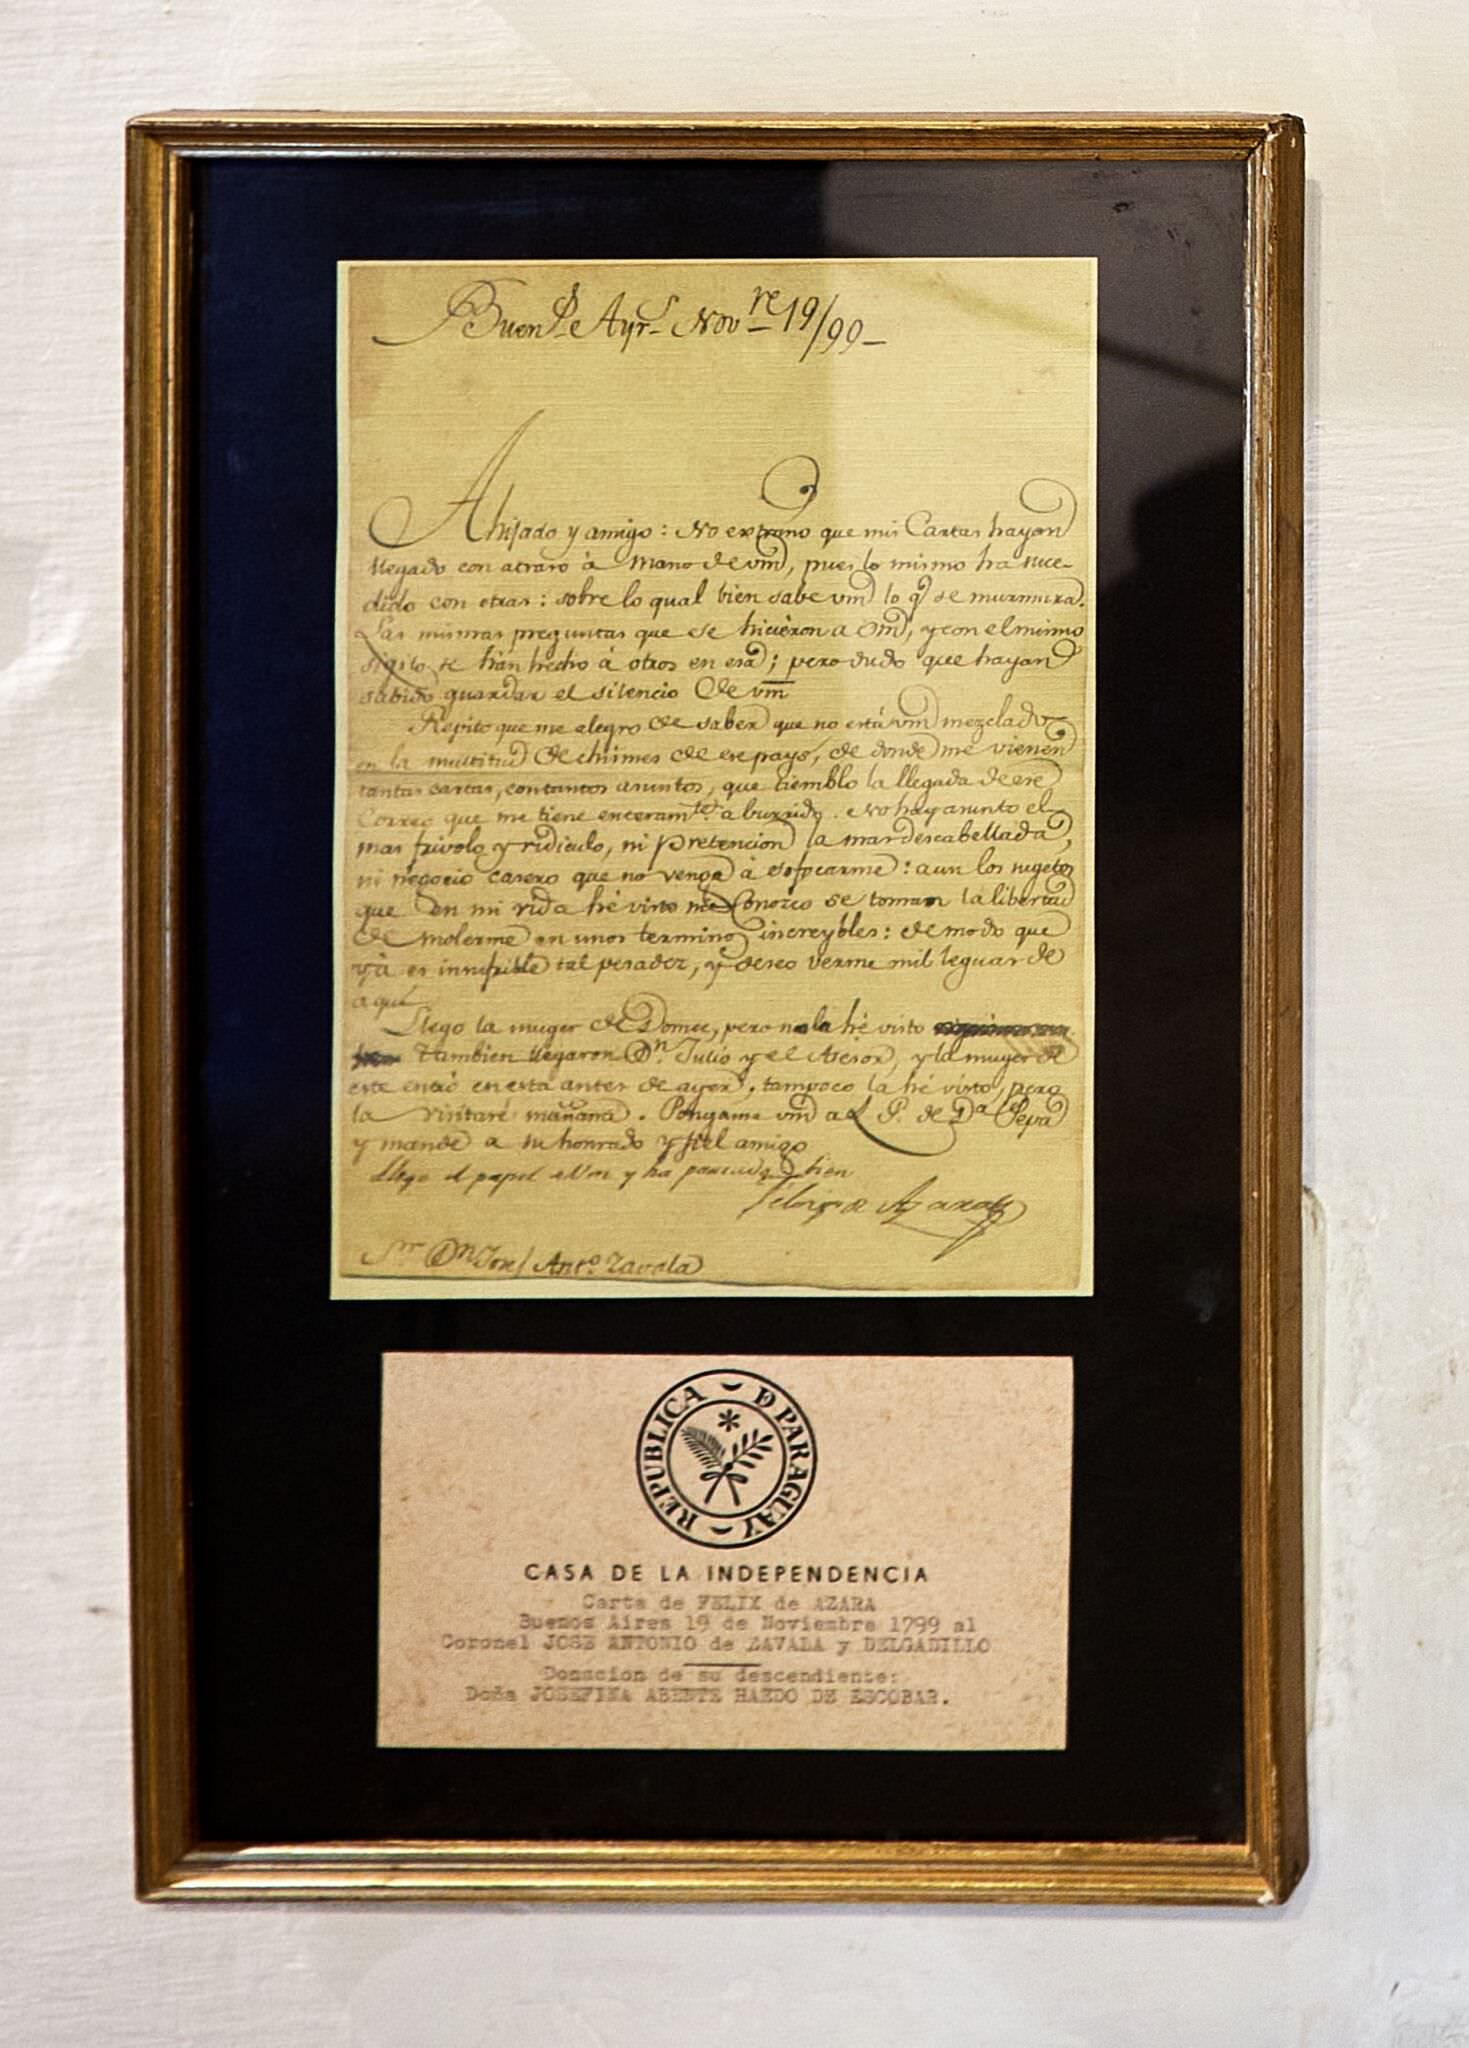 Buen.s Ayr.s Nov.re 19/99_
Ahijado y amigo: No extraño que mis Cartas hayan
llegado con atraso à mano de vm, pues lo mismo ha suce-
dido con otras: sobre lo qual bien sabe vm lo q.e se murmura.
Las mismas preguntas que se hicieron a vm, y con el mismo
sigilo se hàn hecho à otros en esa; pero dudo que hayan
sabido guardar el silencio de vm
Repito que me alegro de saber que no està vm mezclado
en la multitud de chismes de ese pays, de donde me vienen
tantas cartas, con tantos asuntos, que tiemblo la llegada de ese
Correo que me tiene enteram.te aburrido. No hay asunto el
mas frivolo y ridiculo, ni pretencion la mas descabellada,
ni negocio casero que no venga à sofocarme: aun los sugetos
que en mi vida hé visto ni conozco se toman la libertad
de molerme en unos terminos increybles: de modo que
yà es insufrible tal pesadez, y deseo verme mil leguas de
aqui
Llegó la muger de Domec, pero no la hé visto
Tambien llegaron D.n Julio y el Asesor, y la muger de
este entró en esta antes de ayer, tampoco la hé visto, pero
la visitaré mañana. Pongame vm a L. P. de D.a Pepa
y mande a su honrado y fiel amigo
Llegó el papel y ha parecido bien
Felix de Azara
S.or D.n Josef Ant.o Zavala
REPUBLICA D PARAGUAY
CASA DE LA INDEPENDENCIA
Carta de FELIX de AZARA
Buenos Aires 19 de Noviembre 1799 al
Coronel JOSE ANTONIO de ZAVALA y DELGADILLO
Donacion de su descendiente:
Doña JOSEFINA ABENTE HAEDO DE ESCOBAR.